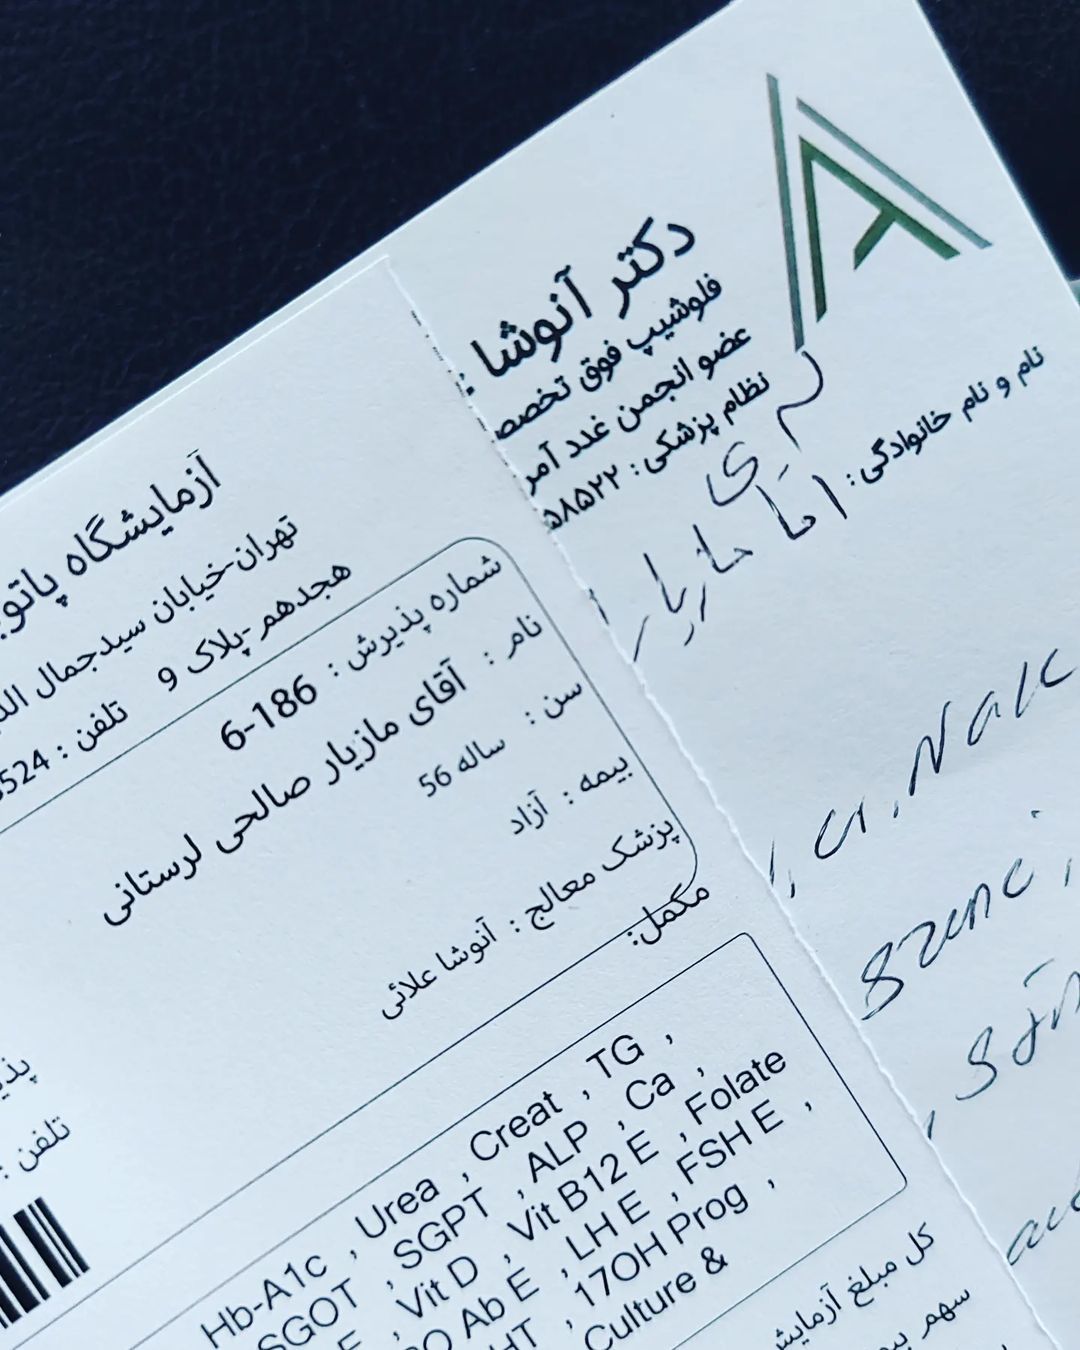 دکتر آنوشا
فلوشیپ فوق تخصص
عضو انجمن غدد آمر
نظام پزشکی: ۵۸۵۲۲
نام و نام خانوادگی:
آقای مازیار
آزمایشگاه پاتو
تهران-خیابان سیدجمال الد
هجدهم -پلاک و
تلفن : 524
شماره پذیرش : 6-186
نام : آقای مازیار صالحی لرستانی
سن : 56 ساله
بیمه : آزاد
پزشک معالج : آنوشا علائی
مکمل:
پذی
تلفن :
Hb-A1c , Urea , Creat , TG ,
SGOT , SGPT , ALP , Ca ,
E , Vit D , Vit B12 E , Folate
O Ab E , LH E , FSH E ,
HT , 17OH Prog ,
Culture &
کل مبلغ آزمایش
سهم بیم